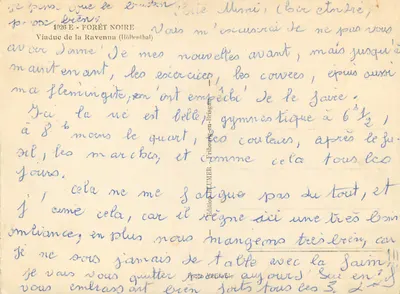 je pense que le
Mimi, Cher André,
pose bien.
1920 E - FORÊT NOIRE
Viadue de la Ravenna (Höllenthal)
Vous m'excuserez de ne pas vous
avoir donné de mes nouvelles avant, mais jusqu'à
maintenant, les exercices, les corvées, puis aussi
ma flemingite, m'ont empêché de le faire.
Ici la vie est belle, gymnastique à 6h 1/2,
à 8h moins le quart, les couleurs, après le fu-
sil, les marches, et comme cela tous les
jours.
cela ne me fatigue pas du tout, et
J'aime cela, car il règne ici une très bonne
ambiance, en plus nous mangeons très bien, car
je ne sors jamais de table avec la faim!!!
je vais vous quitter pour aujourd'hui en
vous embrassant bien forts tous les 3,